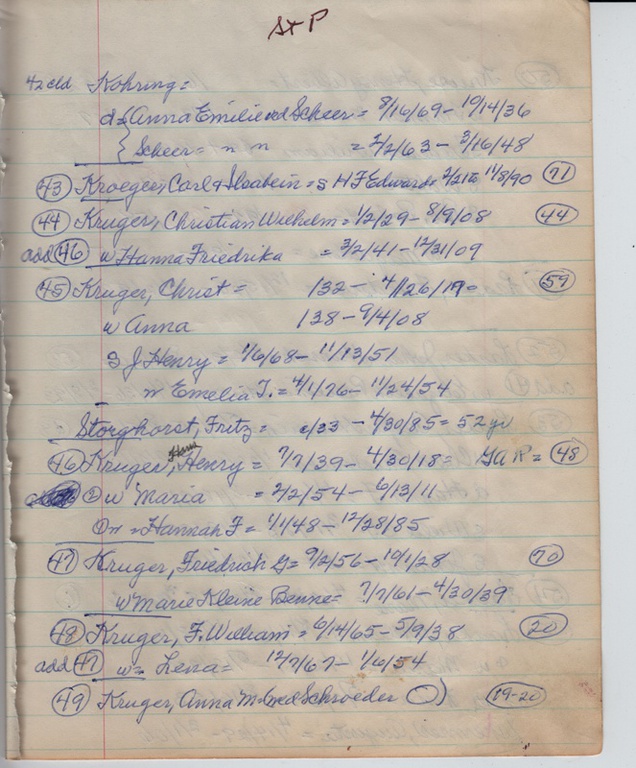 St P
42 cld Kohring =
d = Anna Emilie wd Scheer = 8/16/69 - 10/14/36
Scheer = n n = 2/2/63 - 3/16/48
43 Kroeger, Carl & = s H F Edward = 2/21 to 11/8/90 71
44 Kruger, Christian Wilhelm = 1/2/29 - 8/9/08 44
add 46 w Hanna Friedrika = 3/2/41 - 12/31/09
45 Kruger, Christ = 132 - 4/26/19 = 59
w Anna 138 - 9/4/08
s J Henry = 1/6/68 - 11/13/51
w Emelia T. = 4/1/76 - 11/24/54
Storghorst, Fritz = c/33 - 4/30/85 = 52 yr
46 Kruger, Henry = 7/7/39 - 4/30/18 = GAR = 48
② w Maria = 2/2/54 - 6/13/11
① w = Hannah F = 1/1/48 - 12/28/85
47 Kruger, Friedrich G = 9/2/56 - 10/1/28 70
w Marie Kleine Benne = 7/7/61 - 4/30/39
48 Kruger, F. William = 6/14/65 - 5/9/38 20
add 47 w = Lena = 12/7/67 - 1/6/54
49 Kruger, Anna M wd Schroeder 19-20